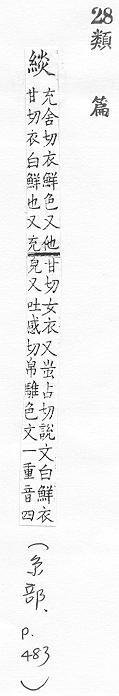 28 類篇
緂
充含切衣鮮色又他甘切女衣又蚩占切說文白鮮衣
甘切衣白鮮也又充皃又吐感切帛騅色文一重音四
(糸部、p.483)